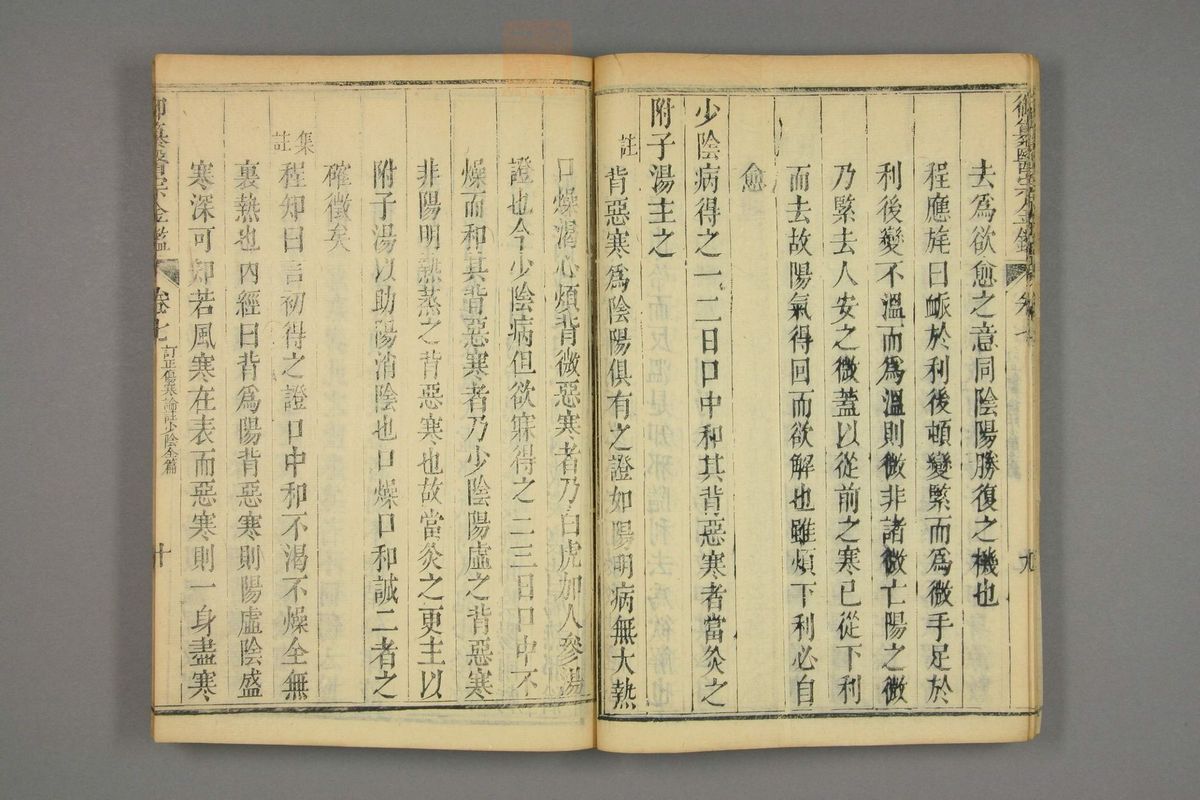 御纂醫宗金鑑
卷七
九
去爲欲愈之意同陰陽勝復之機也
程應旄曰㽲於利後頓變緊而爲微手足於
利後變不溫而爲溫則微非諸微亡陽之微
乃緊去人安之微蓋以從前之寒已從下利
而去故陽氣得回而欲解也雖煩下利必自
愈
少陰病得之一二日口中和其背惡寒者當灸之
附子湯主之
註
背惡寒爲陰陽俱有之證如陽明病無大熱
口燥渴心煩背微惡寒者乃白虎加人參湯
證也今少陰病但欲寐得之二三日口中不
燥而和其背惡寒者乃少陰陽虛之背惡寒
非陽明熱蒸之背惡寒也故當灸之更主以
附子湯以助陽消陰也口燥口和誠二者之
確徵矣
集註
程知曰言初得之證口中和不渴不燥全無
裏熱也內經曰背爲陽背惡寒則陽虛陰盛
寒深可知若風寒在表而惡寒則一身盡寒
御纂醫宗金鑑
卷七
訂正傷寒論註少陰全篇
十